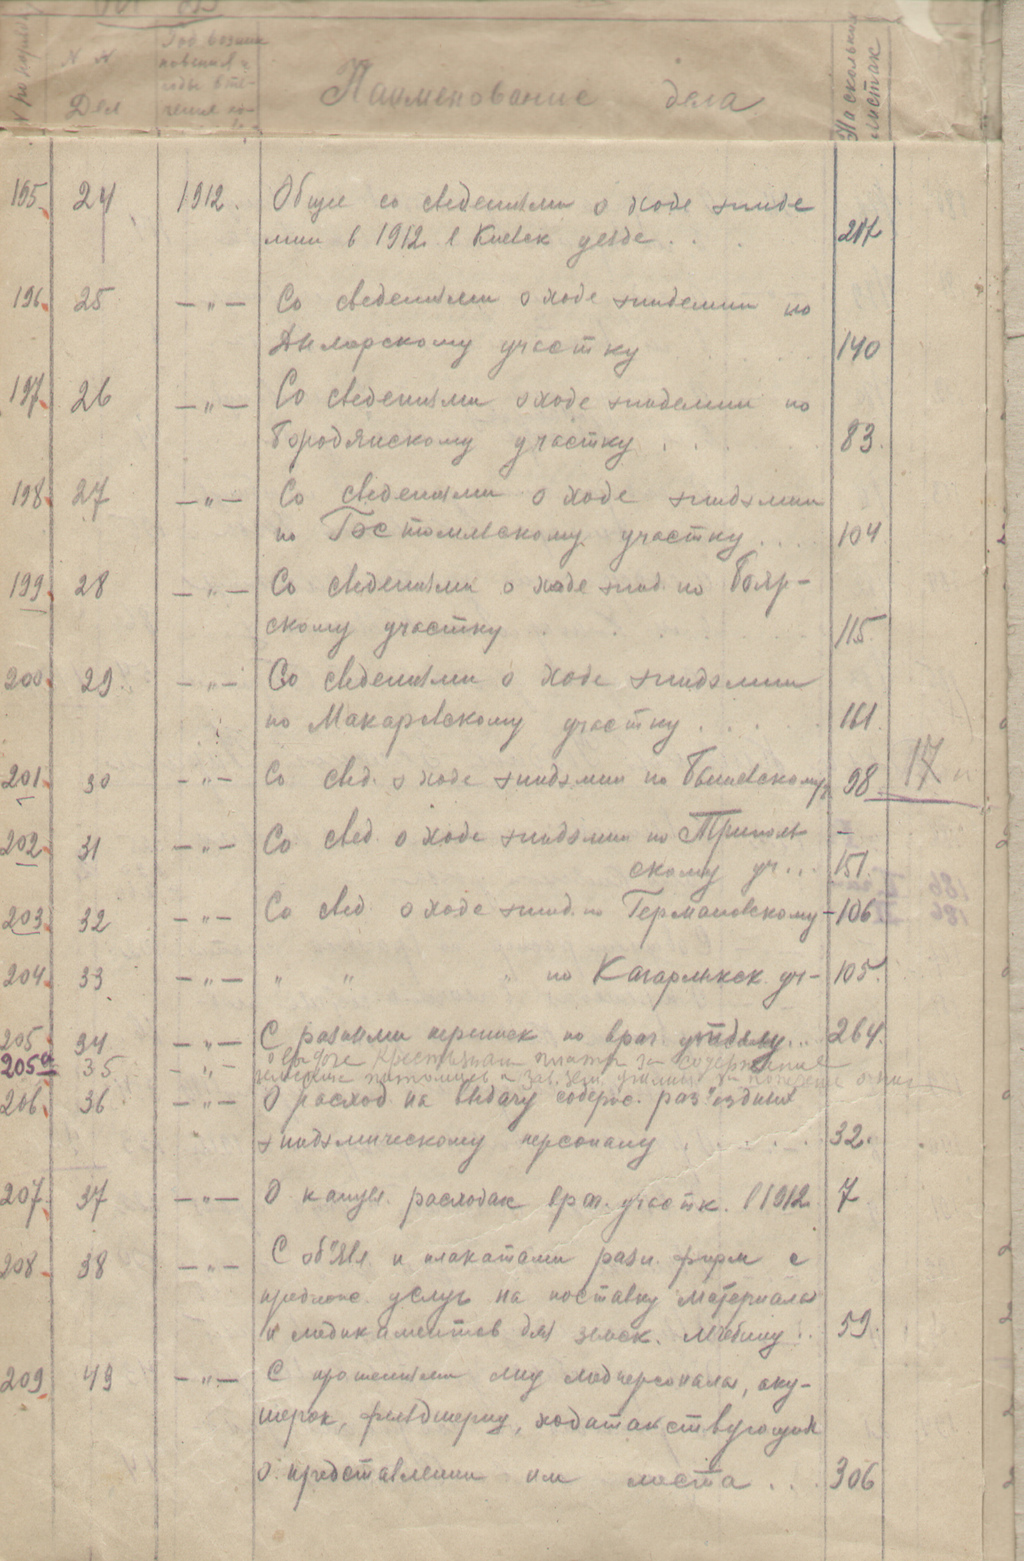 № по поряд.
N N Дел
Год возник
новения и
Наименование дела
На скольких листах
195. 24 1912. Общее со сведениями о ходе эпиде
мии в 1912 в Киевск уезде . . . 217
196. 25 — „ — Со сведениями о ходе эпидемии по
Дымерскому участку 140
197. 26 — „ — Со сведениями о ходе эпидемии по
Бородянскому участку . . . 83.
198. 27 — „ — Со сведениями о ходе эпидэмии
по Гостомльскому участку . . . 104
199. 28 — „ — Со сведениями о ходе эпид. по Бояр-
скому участку . . . 115
200. 29. — „ — Со сведениями о ходе эпидэмии
по Макаровскому участку . . . 161.
201. 30 — „ — Со свед. о ходе эпидэмии по Бышевскому 98. 17
202. 31 — „ — Со свед. о ходе эпидэмии по Триполь –
скому уч... 151.
203. 32 — „ — Со свед. о ходе эпид. по Германовскому - 106
204. 33 — „ — „ „ „ по Кагарлыкск. уч- 105.
205. 34 — „ — С разными переписк по врач. отделу... 264.
205а 35 — „ — крестьянам платы за содержание
206. 36 О расход. на выдачу содерж. раз'ездных
эпидэмическому персоналу . . . . . 32.
207. 37 — „ — О канцел. расходах врач. участк. в 1912 7
208. 38 — „ — С об'явл и плакатами разн. фирм с
предлож. услуг на поставку материалов
и медикаментов для земск. лечебниц . . 59.
209. 49 — „ — С прошениями лиц медперсонала, аку-
шерок, фельдшериц, ходатайствующих
о представлении им места . . . 306